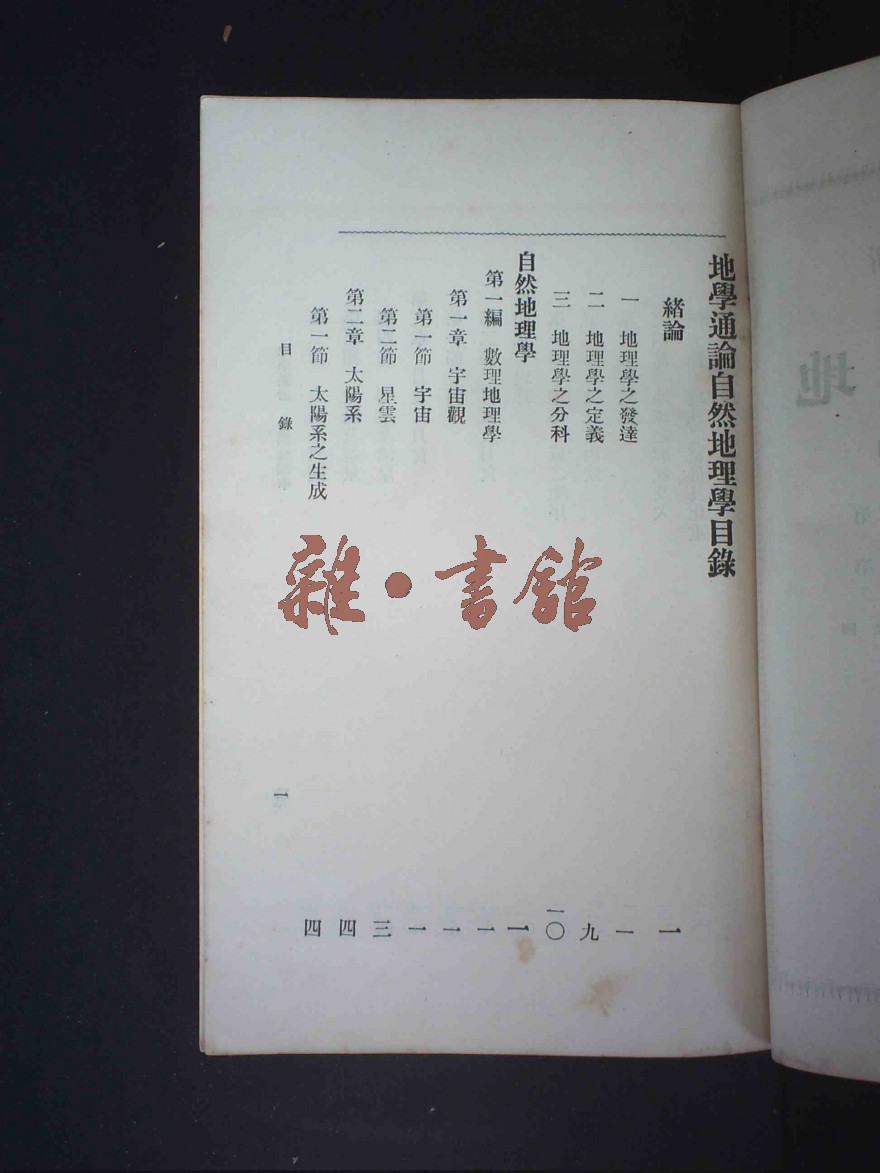 地學通論自然地理學目錄
緒論 一
一 地理學之發達 一
二 地理學之定義 九
三 地理學之分科 一〇
自然地理學 一
第一編 數理地理學 一
第一章 宇宙觀 一
第一節 宇宙 一
第二節 星雲 三
第二章 太陽系 四
第一節 太陽系之生成 四
目錄 一
雜·書館
地